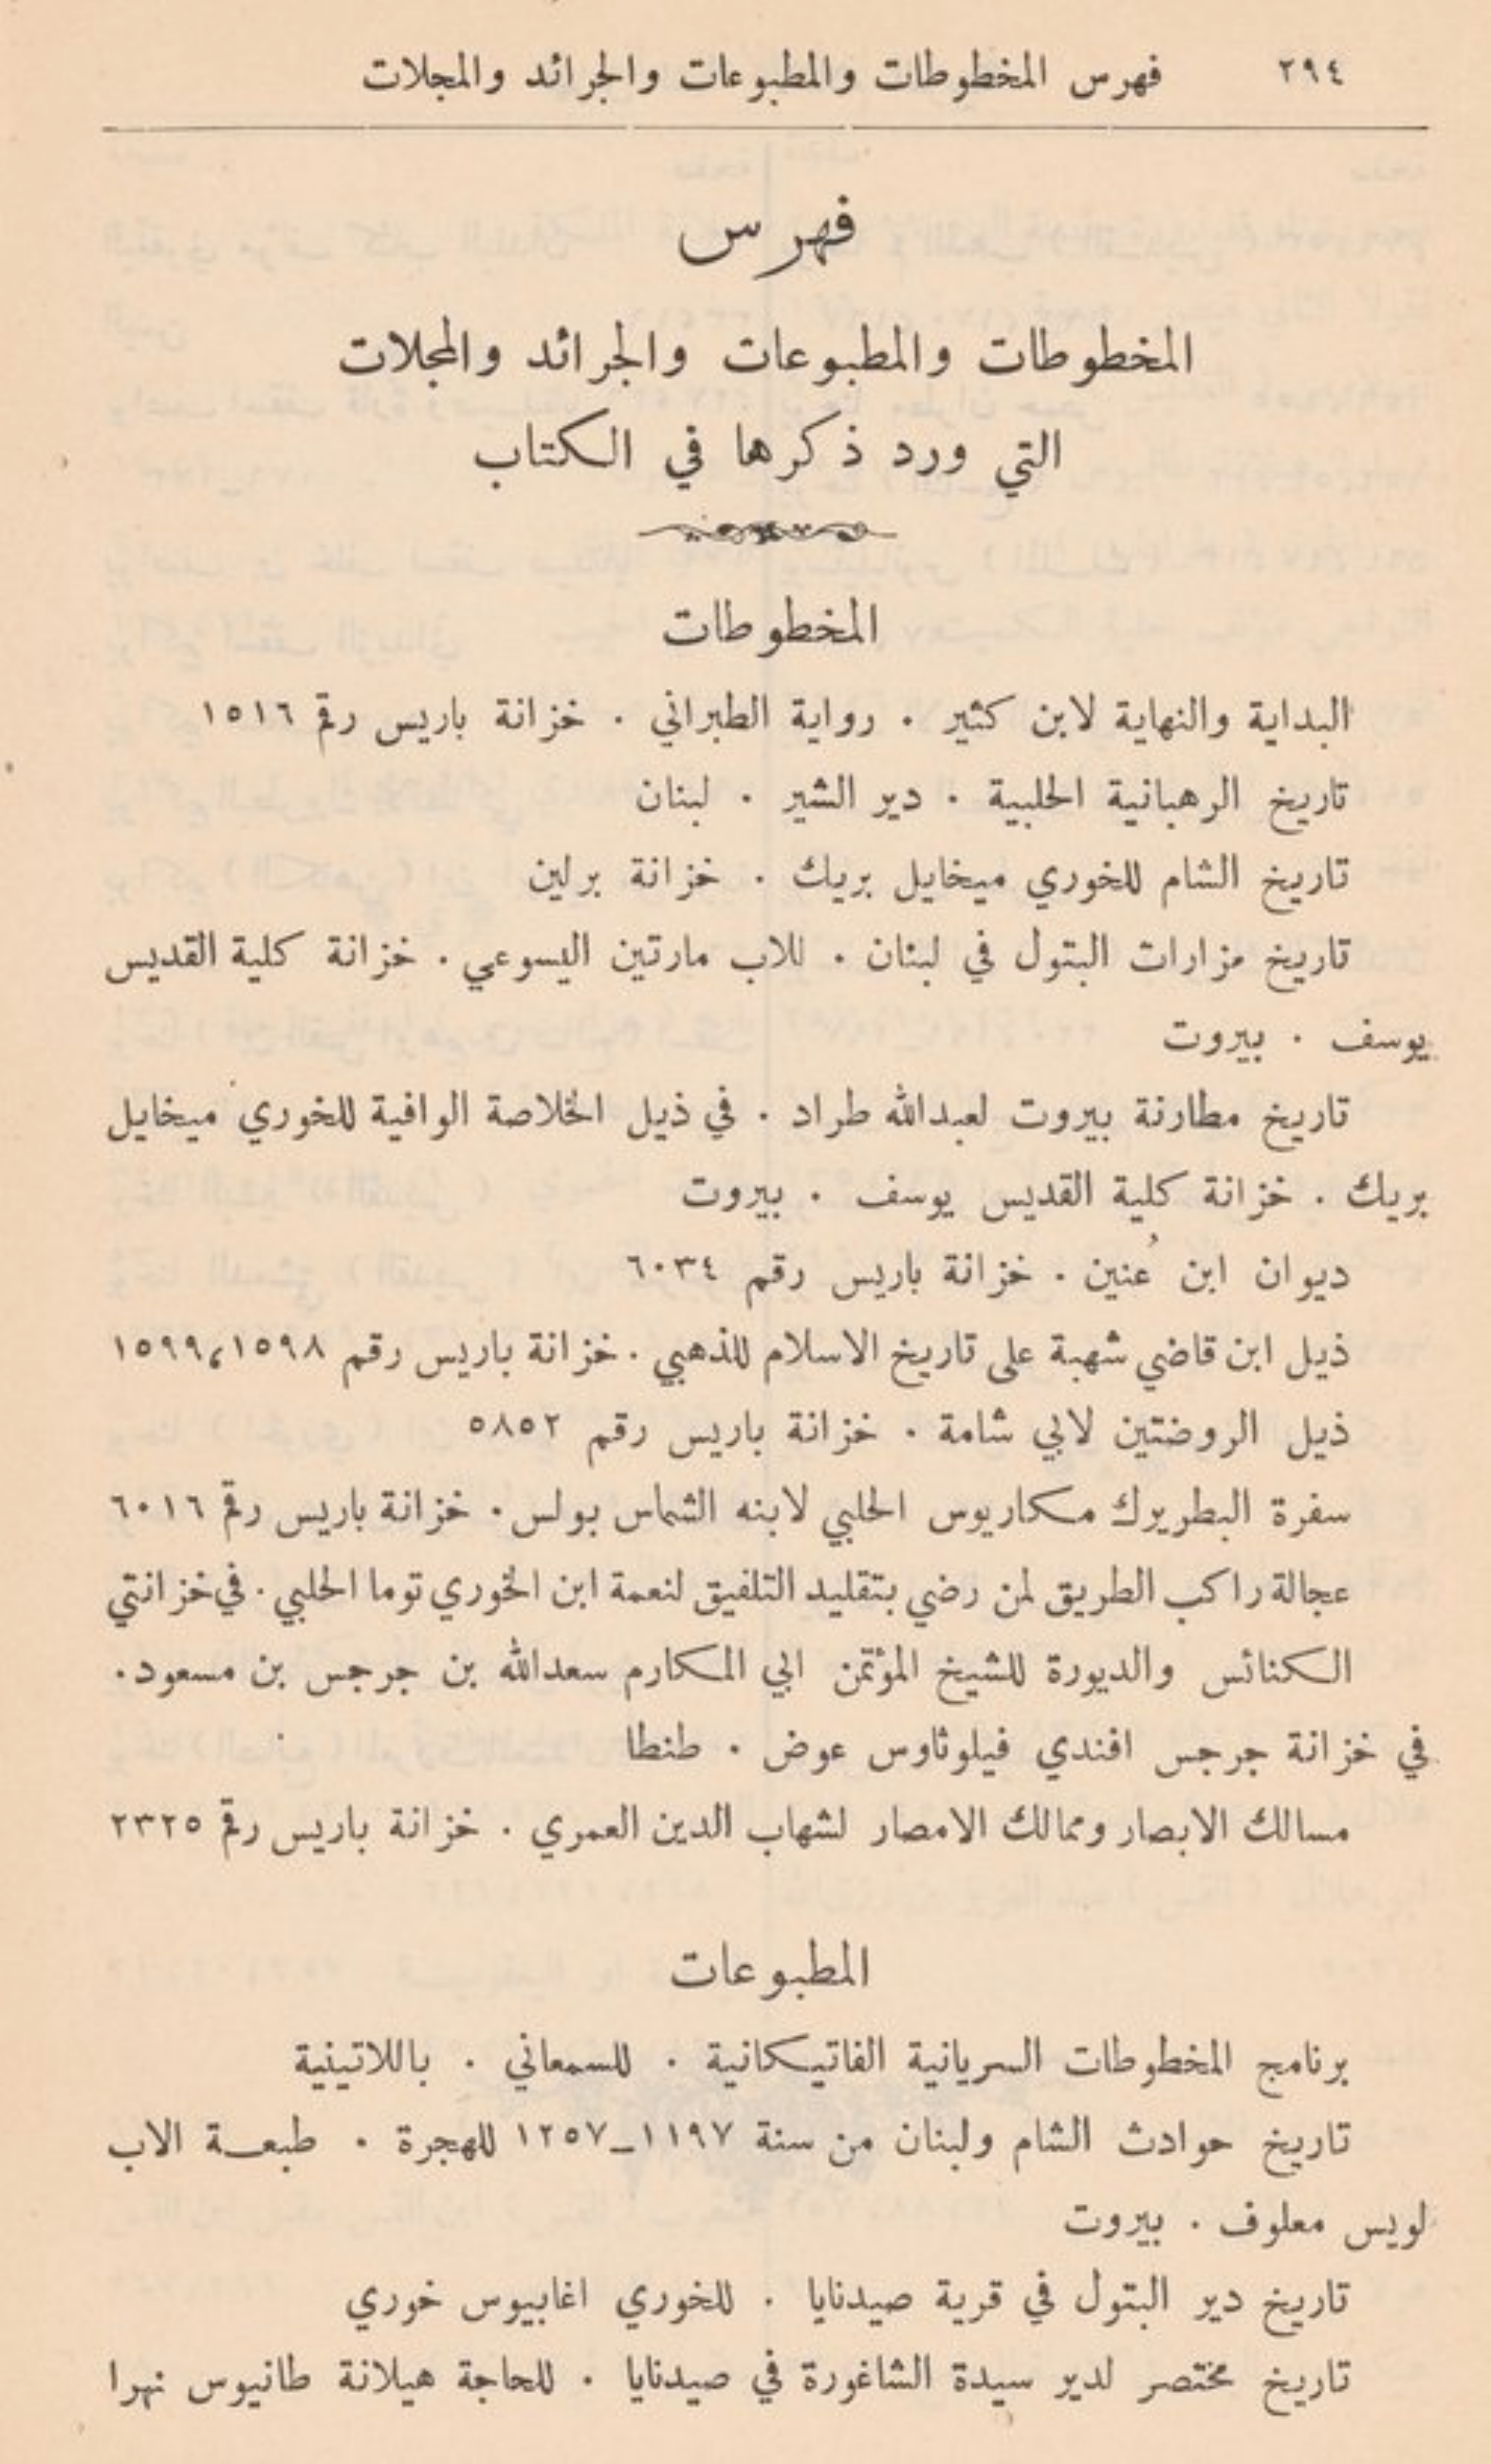 ٢٩٤ فهرس المخطوطات والمطبوعات والجرائد والمجلات
فهرس
المخطوطات والمطبوعات والجرائد والمجلات
التي ورد ذكرها في الكتاب
المخطوطات
البداية والنهاية لابن كثير . رواية الطبراني . خزانة باريس رقم ١٥١٦
تاريخ الرهبانية الحلبية . دير الشير . لبنان
تاريخ الشام للخوري ميخايل بريك . خزانة برلين
تاريخ مزارات البتول في لبنان . للاب مارتين اليسوعي . خزانة كلية القديس
يوسف . بيروت
تاريخ مطارنة بيروت لعبدالله طراد . في ذيل الخلاصة الوافية للخوري ميخايل
بريك . خزانة كلية القديس يوسف . بيروت
ديوان ابن عُنين . خزانة باريس رقم ٦٠٣٤
ذيل ابن قاضي شهبة على تاريخ الاسلام للذهبي . خزانة باريس رقم ١٥٩٨،١٥٩٩
ذيل الروضتين لابي شامة . خزانة باريس رقم ٥٨٥٢
سفرة البطريرك مكاريوس الحلبي لابنه الشماس بولس . خزانة باريس رقم ٦٠١٦
عجالة راكب الطريق لمن رضي بتقليد التلفيق لنعمة ابن الخوري توما الحلبي . في خزانتي
الكنائس والديورة للشيخ المؤتمن ابي المكارم سعدالله بن جرجس بن مسعود .
في خزانة جرجس افندي فيلوثاوس عوض . طنطا
مسالك الابصار وممالك الامصار لشهاب الدين العمري . خزانة باريس رقم ٢٣٢٥
المطبوعات
برنامج المخطوطات السريانية الفاتيكانية . للسمعاني . باللاتينية
تاريخ حوادث الشام ولبنان من سنة ١١٩٧_١٢٥٧ للهجرة . طبعة الاب
لويس معلوف . بيروت
تاريخ دير البتول في قرية صيدنايا . للخوري اغابيوس خوري
تاريخ مختصر لدير سيدة الشاغورة في صيدنايا . للحاجة هيلانة طانيوس نهرا